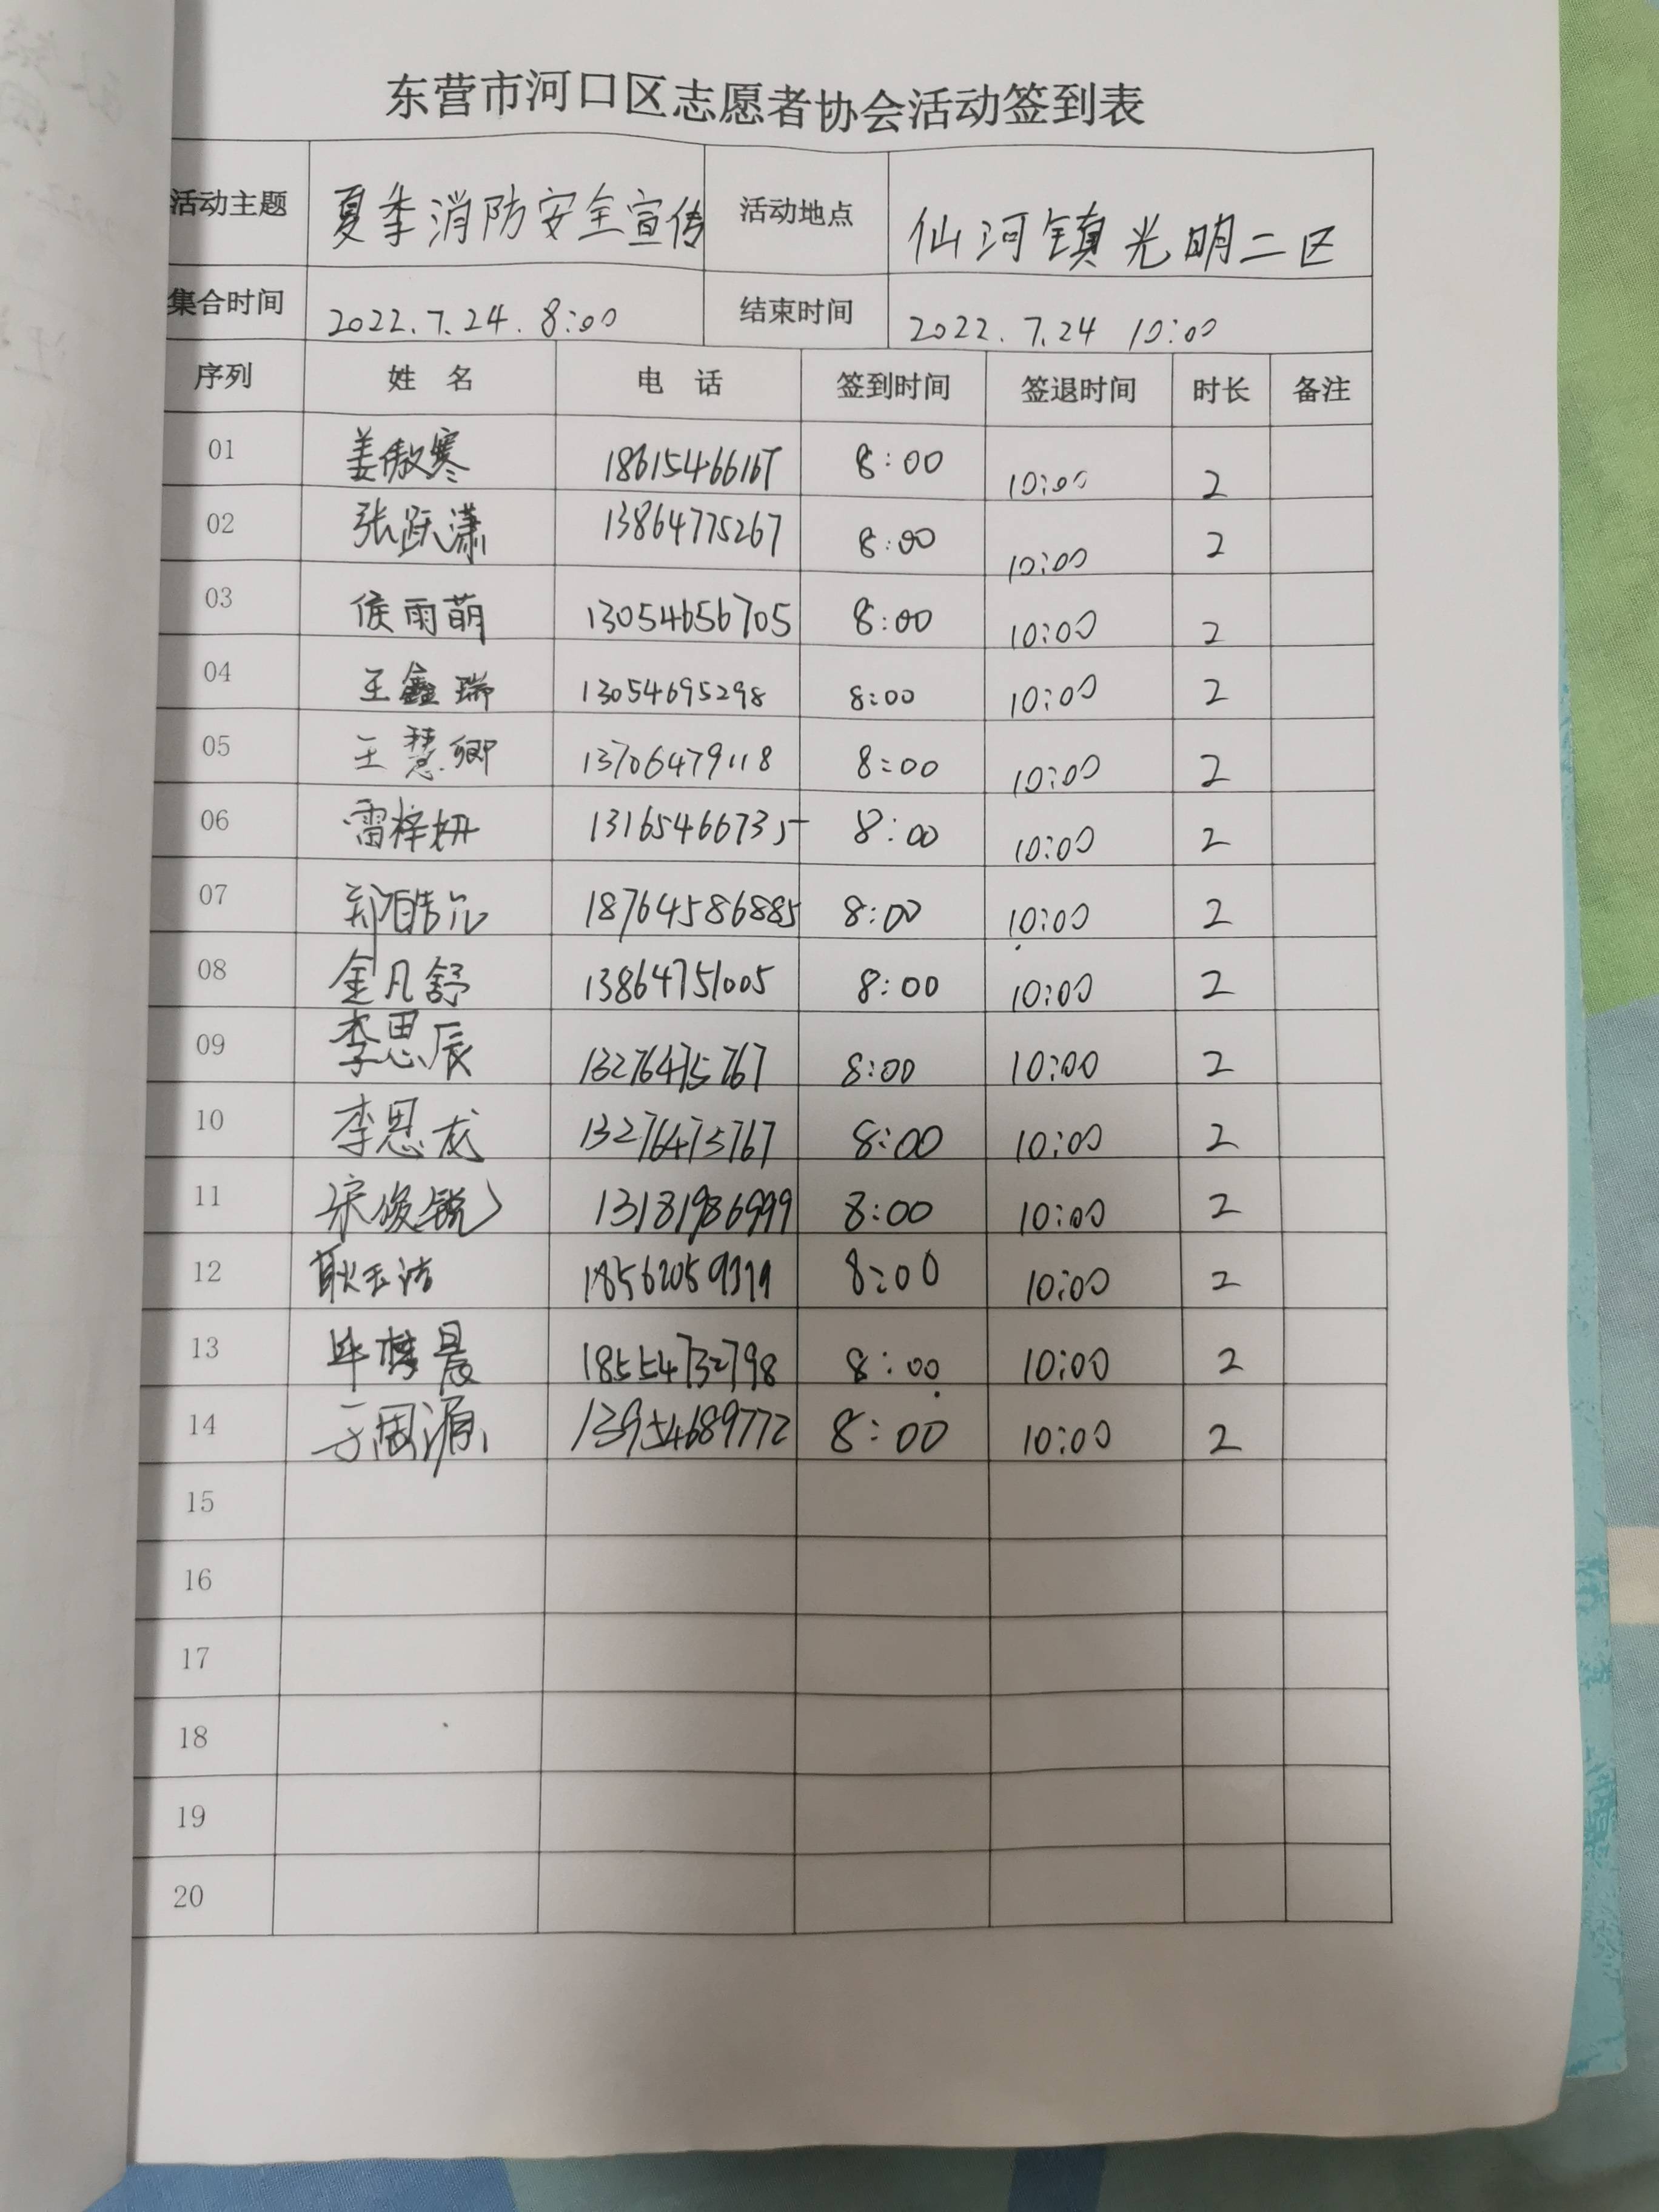 东营市河口区志愿者协会活动签到表
活动主题 夏季消防安全宣传 活动地点 仙河镇光明二区
集合时间 2022.7.24. 8:00 结束时间 2022.7.24 10:00
序列 姓名 电话 签到时间 签退时间 时长 备注
01 姜傲寒 8:00 10:00 2
02 张跃潇 13864775267 8:00 10:00 2
03 侯雨萌 13054656705 8:00 10:00 2
04 王鑫瑞 13054695298 8:00 10:00 2
05 王慧卿 13706479118 8:00 10:00 2
06 雷梓妍 13165466735 8:00 10:00 2
07 18764586885 8:00 10:00 2
08 金凡舒 13864751005 8:00 10:00 2
09 李思辰 13276475767 8:00 10:00 2
10 李思龙 13276475767 8:00 10:00 2
11 宋俊锐 13181986999 8:00 10:00 2
12 耿玉洁 8:00 10:00 2
13 毕梦晨 18554732798 8:00 10:00 2
14 13954689772 8:00 10:00 2
15
16
17
18
19
20